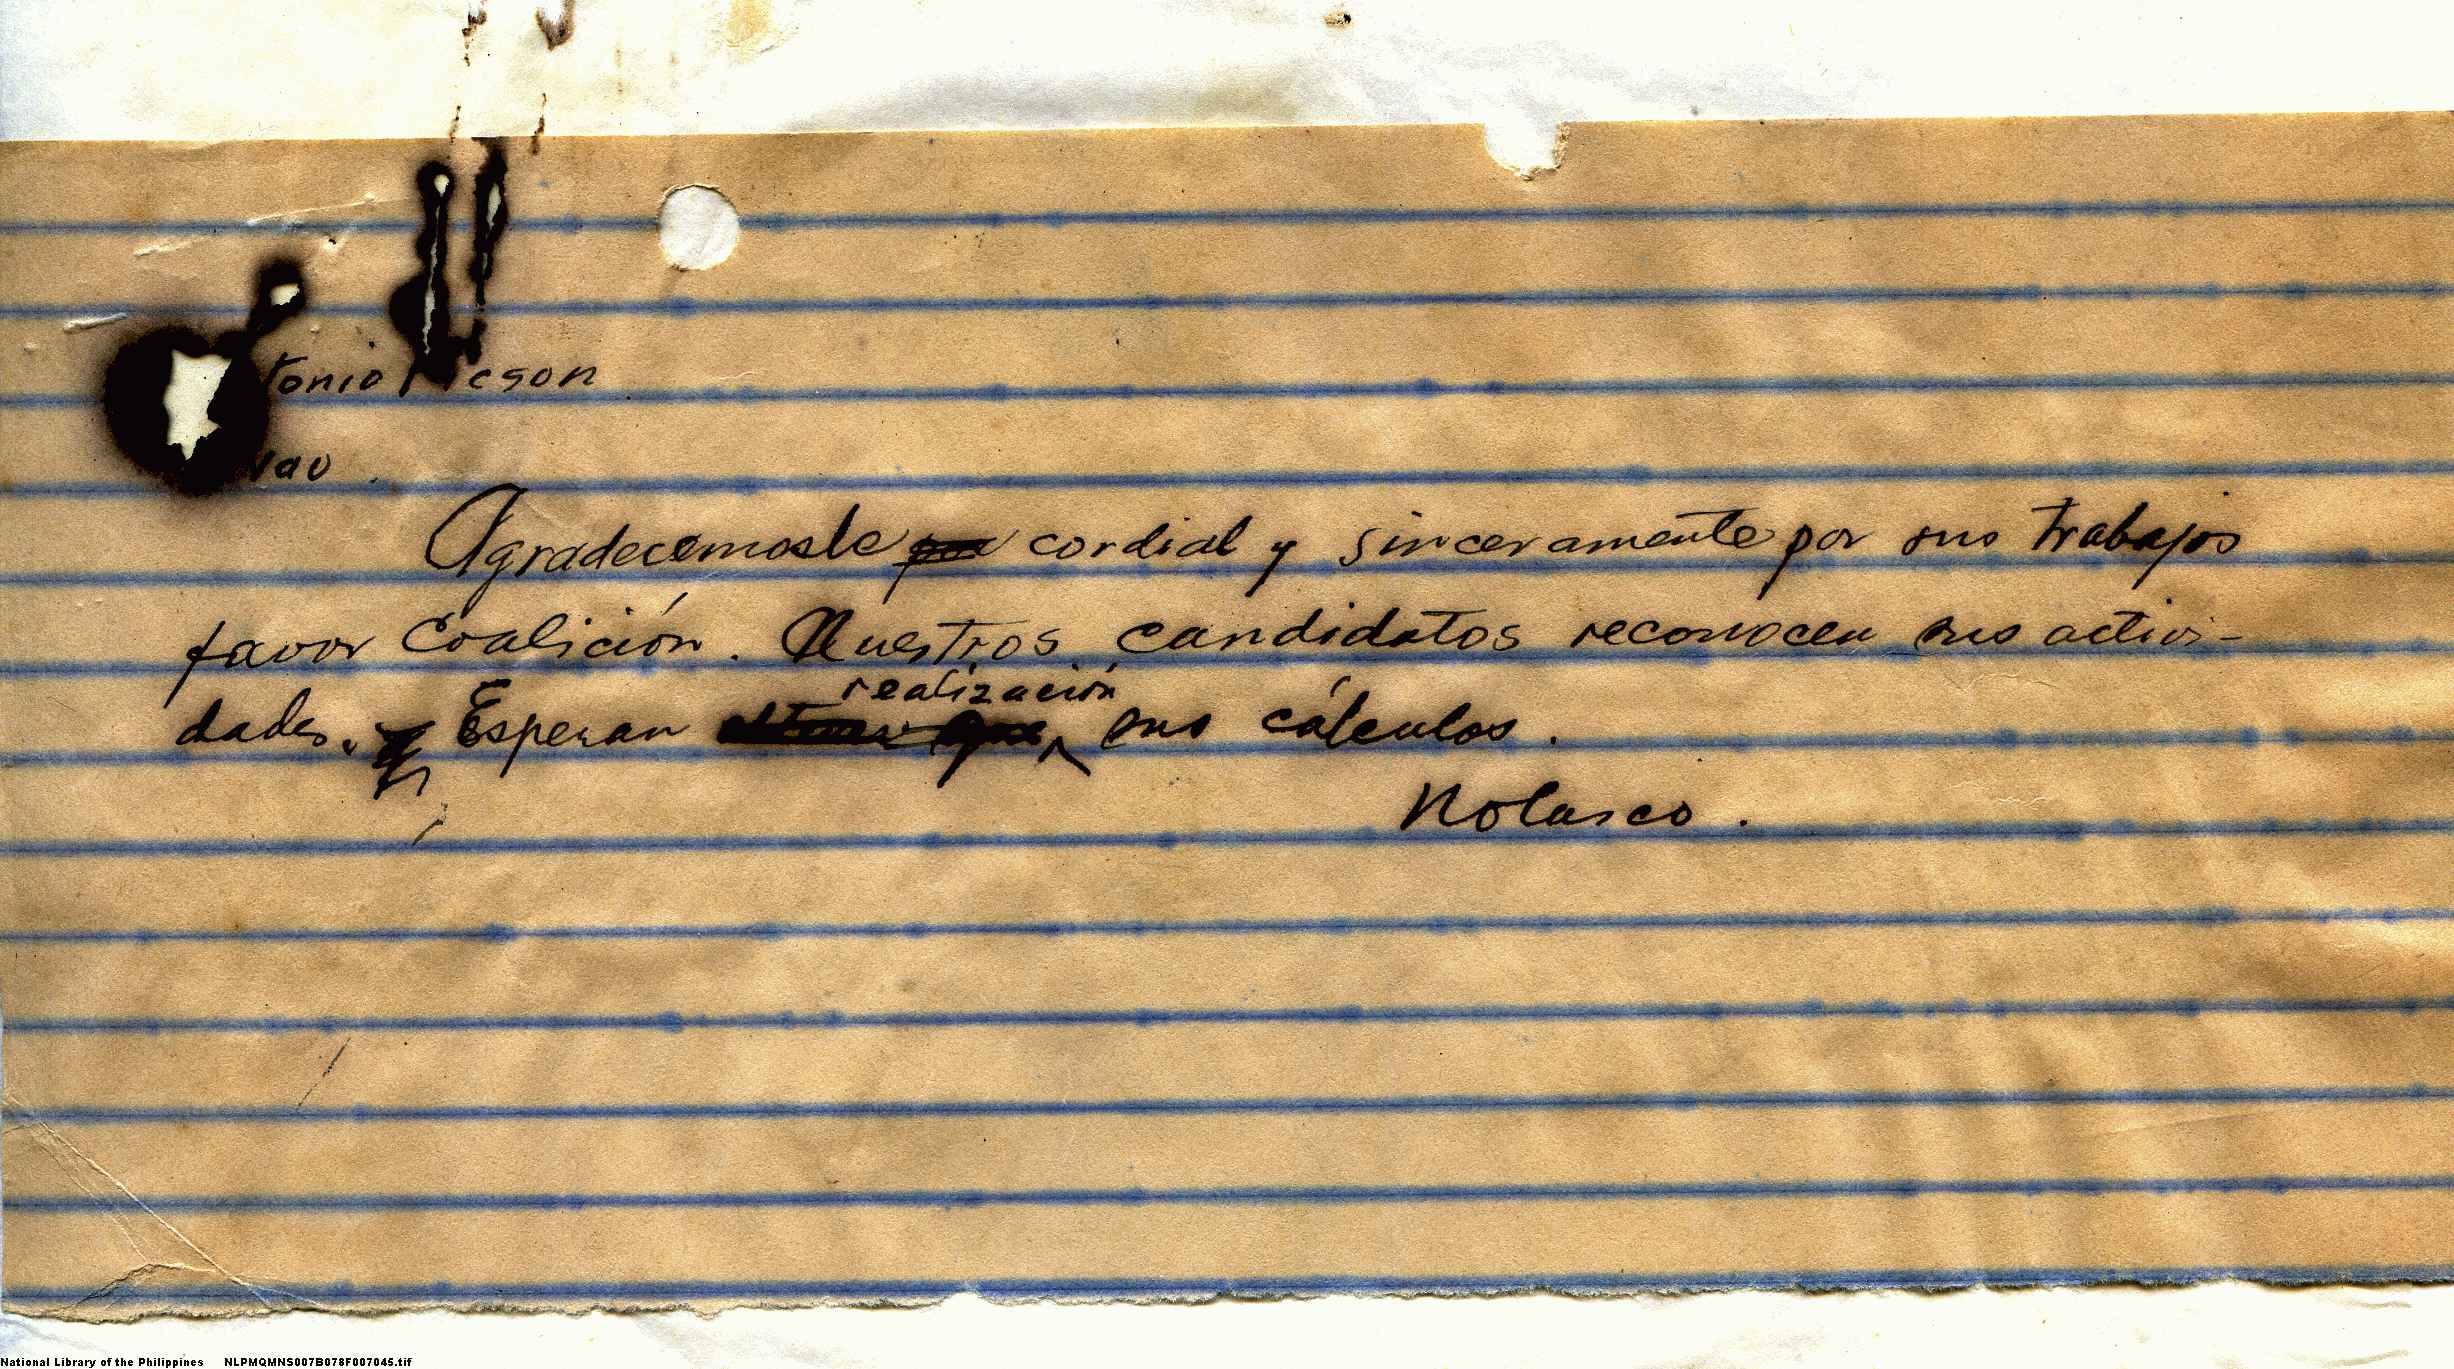 tonio
vao.
Agradecemosle cordial y sinceramente por sus trabajos
favor Coalición. Nuestros candidatos reconocen sus activi-
dades. Esperan realización sus cálculos.
Nolasco.
National Library of the Philippines NLPMQMNS007B078F007045.tif